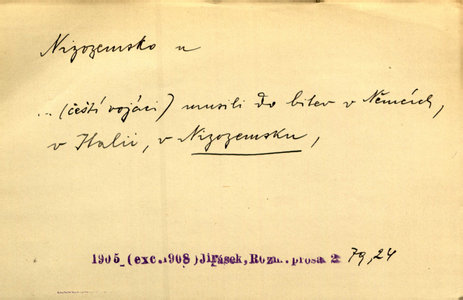 Nizozemsko n
... (čeští vojáci) musili do bitev v Němcích,
v Italii, v Nizozemsku,
1905 (exc.1908) Jirásek, Rozm. prosa 2 79,24